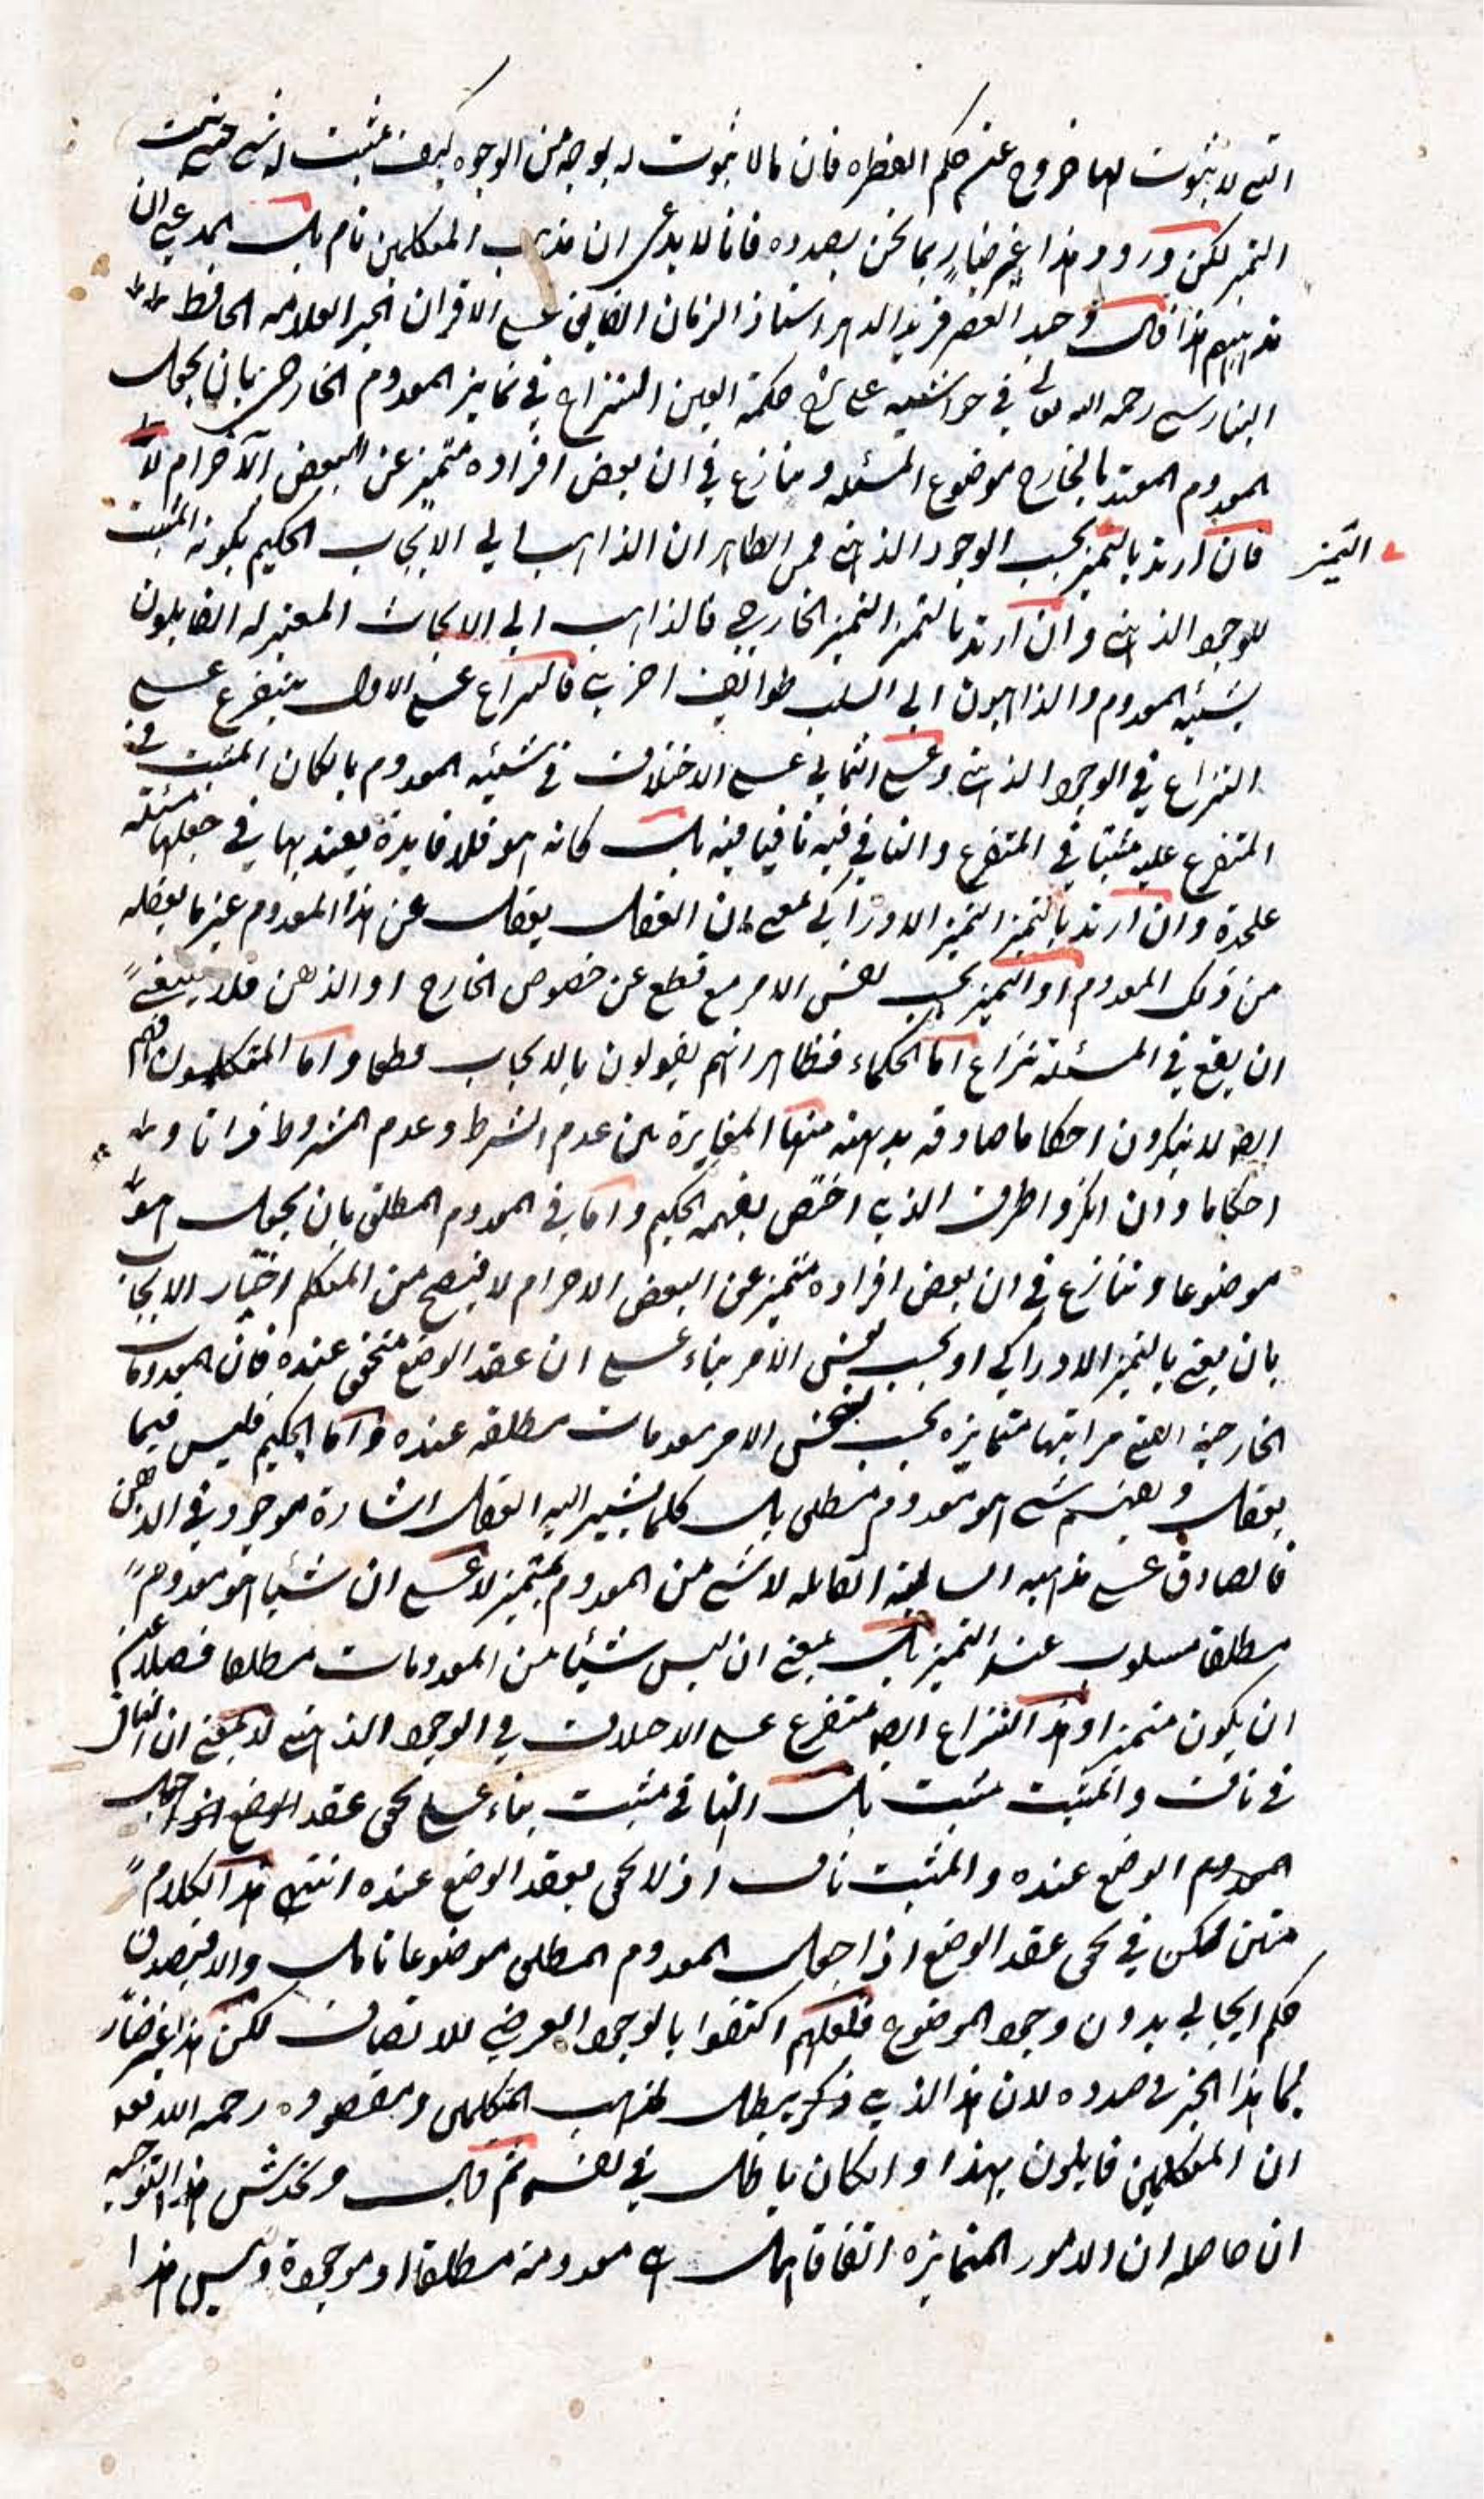 التي لا ثبوت لها خروج عن حكم الفطره فان ما لا ثبوت له بوجه من الوجوه كيف يثبت له شي حتى يثبت
التميز لكن ورود هذا غير ضار بما نحن بصدده فانا لا ندعي ان مذهب المتكلمين تام بل المدعي ان
مذهبهم هذا قال وحيد العصر فريد الدهر استاذ الزمان الفايق على الاقران الحبر العلامه الحافظ
البنارسي رحمه الله تعالى في حواشيه على شرح حكمة العين النزاع في تمايز المعدوم الخارجي بان يجعل
المعدوم المقيد بالخارج موضوع المسئله وينازع في ان بعض افراده متميز عن البعض الآخر ام لا
فان اريد بالتميز بحسب الوجود الذهني فمن الظاهر ان الذاهب الى الايجاب الحكيم لكونه المثبت
التميز
للوجود الذهني وان اريد بالتميز التميز الخارجي فالذاهب الى الايجاب المعتزله القايلون
بشيئية المعدوم والذاهبون الى السلب طوايف اخرى فالنزاع على الاول يتفرع على
النزاع في الوجود الذهني وعلى الثاني على الاختلاف في شيئية المعدوم بالكان المثبت في
المتفرع عليه مثبتا في المتفرع والنافي فيه نافيا فيه بل كانه هو فلا فايدة يعتد بها في جعلها مسئلة
علحدة وان اريد بالتميز التميز الادراكي بمعنى ان العقل يعقل عن هذا المعدوم غير ما يعقله
من ذلك المعدوم او التميز بحسب نفس الامر مع قطع عن خصوص الخارج او الذهن فلا ينبغي
ان يقع في المسئلة نزاع اما الحكماء فظاهر انهم يقولون بالايجاب قطعا واما المتكلمون فهم
ايضا لا ينكرون احكاما صادقه بديهته منها المغايرة بين عدم الشرط وعدم المشروط ذاتا و
احكاما وان انكروا طرف الذي اختص بفهمه الحكيم واما في المعدوم المطلق بان يجعل هو
موضوعا وتنازع في ان بعض افراده متميز عن البعض الاخر ام لا فيصح من المتكلم اختيار الايجاب
بان يعني بالتميز الادراكي او بحسب نفس الامر بناء على ان عقد الوضع متحقق عنده فان المعدومات
الخارجية التي مر انها متمايزه بحسب نفس الامر معدومات مطلقه عنده واما الحكيم فليس فيما
يعقل ويفهم شي هو معدوم مطلق بل كلما يشير اليه العقل اشارة موجود في الذهن
فالصادق على مذهبه السالبة القايله لا شي من المعدوم بمتميز لا على ان شيئا هو معدوم
مطلق مسلوب عنه التميز بل بمعنى ان ليس شيئا من المعدومات مطلقا فضلا عن
ان يكون متميزا وهذا النزاع ايضا متفرع على الاختلاف في الوجود الذهني لا بمعنى ان النافي
في ناف والمثبت مثبت بل النافي مثبت بناء على تحقق عقد الوضع اذا جعل
المعدوم الوضع عنده والمثبت ناف اذ لا تحقق بعقد الوضع عنده انتهى هذا الكلام
متين ممكن في تحقق عقد الوضع اذا جعل المعدوم المطلق موضوعا تامل والا فيصدق
حكم ايجابي بدون وجود الموضوع فلعلهم اكتفوا بالوجود الفرضي للاتصاف لكن هذا غير ضار
لما هذا الحبر في صدده لان هذا الذي ذكر يبطل مذهب المتكلمين ومقصوده رحمه الله تعالى
ان المتكلمين قايلون بهذا وانكان باطل في نفسه ثم قال ويخدش هذا التوجيه
ان حاصله ان الامور المتمايزه اتفاقا هل هي معدومة مطلقة او موجودة وليس هذا